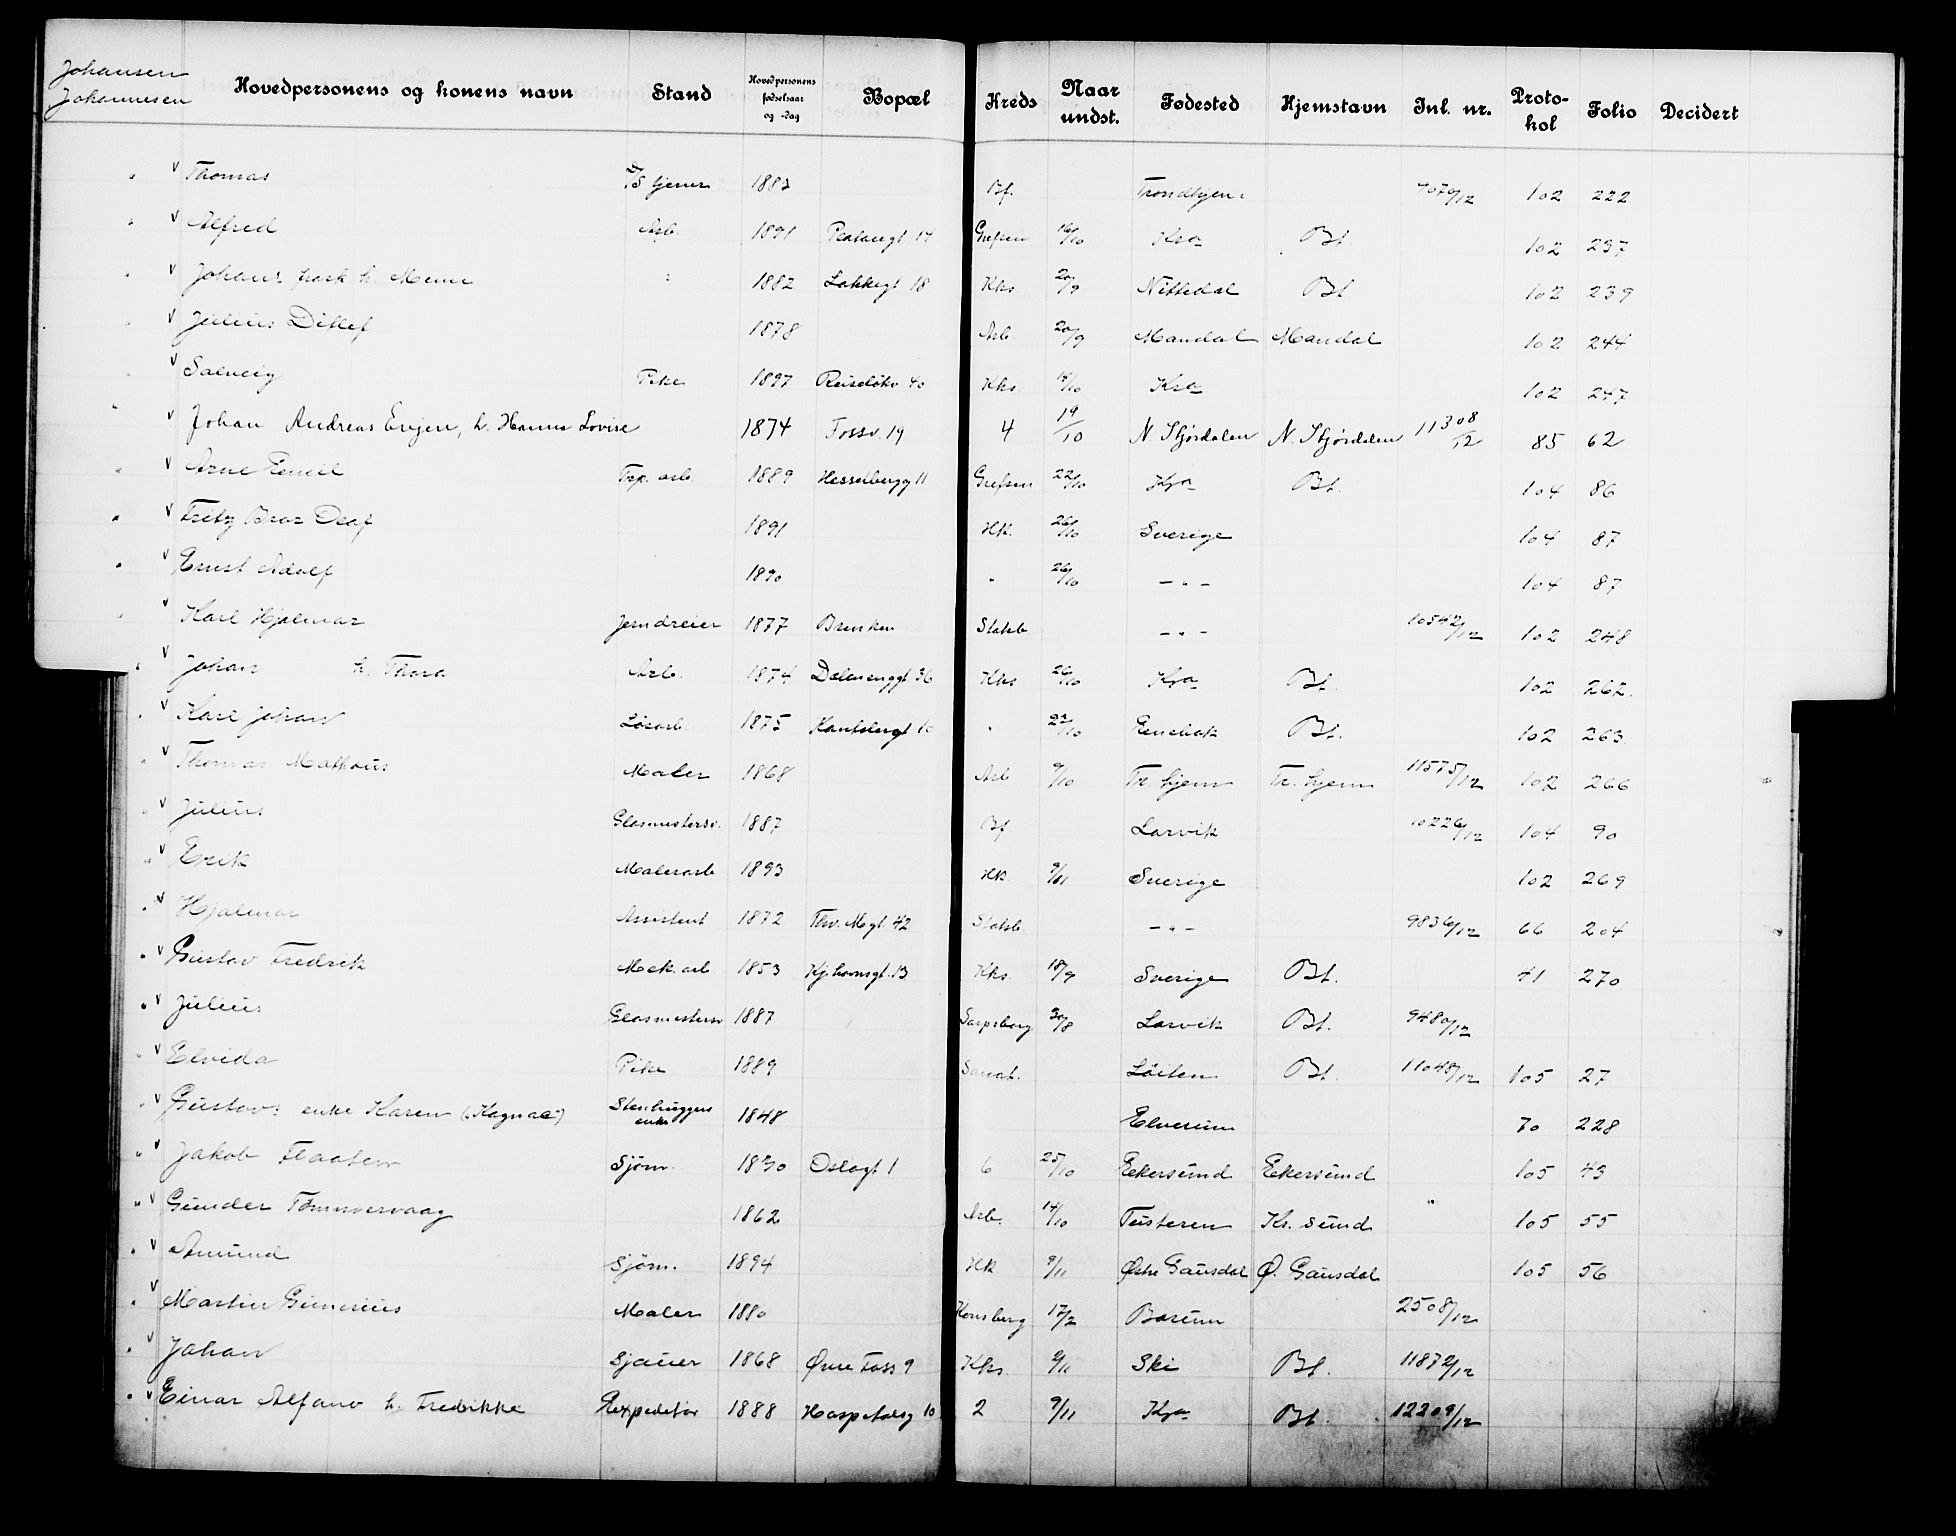 Johansen
Johannesen
Hovedpersonens og konens navn Stand Hovedpersonens fødselsaar og -dag Bopæl Kreds Naar undst. Fødested Hjemstavn Inl. nr. Proto-kol Folio Decidert
" v Thomas tjener 1883 Bf. Trondhjem 102 222
" v Alfred Arb. 1891 14 Grefsen 16/10 Kra Bt. 102 237
" v Johans h. " 1882 Lakkegt 18 Kks. 20/9 Nittedal Bt 102 239
" v Julius Ditlef 1878 Arb 20/9 Mandal Mandal 102 244
" v Solveig Pike 1897 Reiseløkv 40 Kks. 14/10 Kra 102 247
" v Johan Andreas Enjen, h. Hanna Lovise 1874 Fossv. 19 4 19/10 N. Stjørdalen N. Stjørdalen 11308/12 85 62
" v Arne Emil Trp. arb. 1889 Hesselbergg 11 Grefsen 22/10 Kra Bt. 104 86
" v Fritz Bror Olaf 1891 Hk. 26/10 Sverige 104 87
" v Ernst Adolf 1890 " 26/10 - " - 104 87
" v Karl Hjalmar Jerndreier 1877 Brinken Statsb - " - 10542/12 102 248
" v Johan h. Thora Arb. 1874 Dælenenggt. 36 Kks 26/10 Kra Bt. 102 262.
" v Karl Johan Løsarb. 1875 10 " 23/10 Enebak Bt. 102 263.
" v Thomas Mathæus Maler 1868 Arb 9/10 Tr. hjem Tr. hjem 11575/12 102 266
" v Julius Glasmestersv. 1887 Bf. Larvik 10226/12 104 90
" v Erik Malerarb 1893 Hk. 9/11 Sverige 102 269
" v Hjalmar Assistent 1872 Thv. Mgt. 42 Statsb. - " - 9836/12 66 204
" v Gustav Fredrik Mek. arb 1853 Kj.havnsgt. 13 Kks. 18/9 Sverige Bt. 41 270
" v Julius Glasmestersv 1887 Sarpsborg 30/8 Larvik Bt. 9480/12
" v Elvida Pike 1889 Sanat. Løiten Bt. 11048/12 105 27
" v Gustavs enke Karen Stenhuggers enke 1848 Elverum 70 228
" v Jakob Flaaten Sjøm. Oslogt 1 6 25/10 Ekersund Ekersund 105 43
" v Gunder Tømmervaag 1862 Arb. 14/10 Tusteren Kr. sund " 105 55
" v Amund Sjøm. 1894 Hk 9/11 Østre Gausdal Ø. Gausdal 105 56
" v Martin Gunerius Maler 1880 Konsberg 17/2 Bærum 2508/12
" v Johan Sjauer 1868 Øvre Foss 9 Kks. 9/11 Ski Bt. 11872/12
" v Einar Alfano h. Fredrikke Expeditør 1888 Hospitalsg 10 2 9/11 Kra Bt. 12209/12